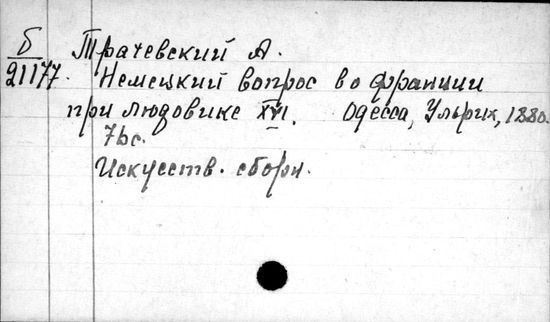 Б
21177.
Трачевский А.
Немецкий вопрос во франции
при людовике XVI. Одесса, Ульрих, 1880.
76с.
Искусств. сборн.